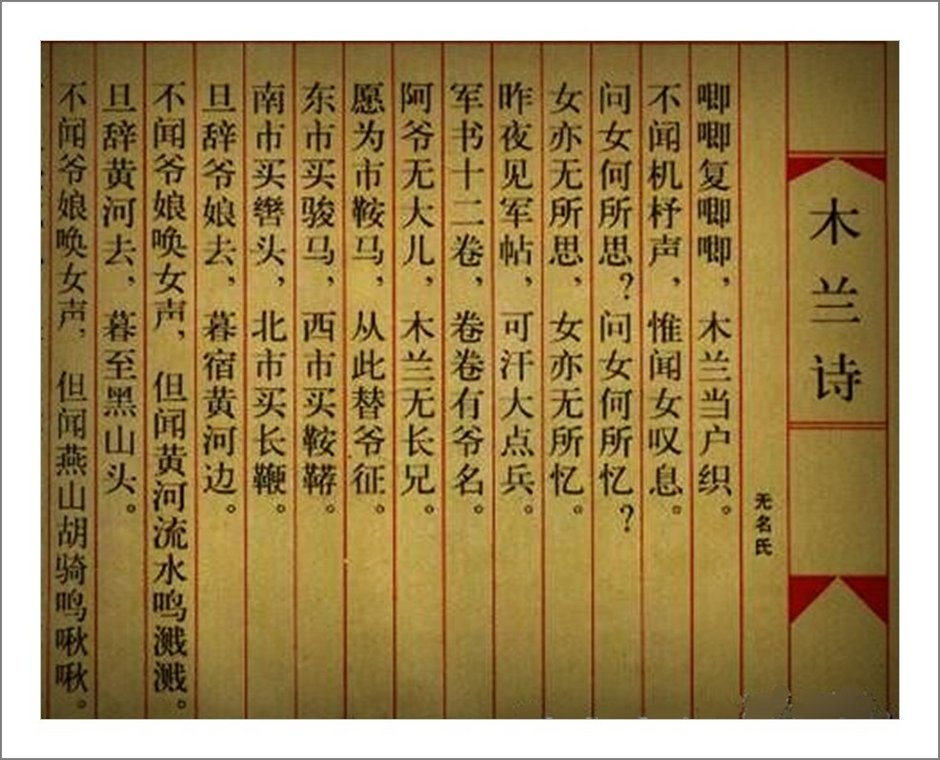 木兰诗
无名氏
唧唧复唧唧，木兰当户织。
不闻机杼声，惟闻女叹息。
问女何所思？问女何所忆？
女亦无所思，女亦无所忆。
昨夜见军帖，可汗大点兵。
军书十二卷，卷卷有爷名。
阿爷无大儿，木兰无长兄。
愿为市鞍马，从此替爷征。
东市买骏马，西市买鞍鞯，
南市买辔头，北市买长鞭。
旦辞爷娘去，暮宿黄河边。
不闻爷娘唤女声，但闻黄河流水鸣溅溅。
旦辞黄河去，暮至黑山头。
不闻爷娘唤女声，但闻燕山胡骑鸣啾啾。